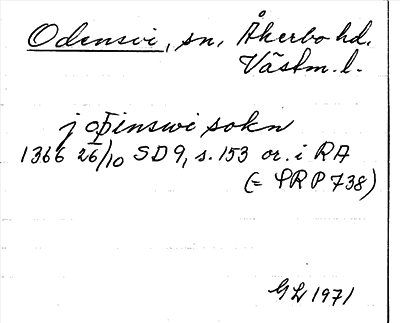 Odensvi, sn. Åkerbo hd.
Västm. l.
j oþinswi sokn
1366 26/10 SD 9, s. 153 or. i RA
(= SRP 738)
GL 1971